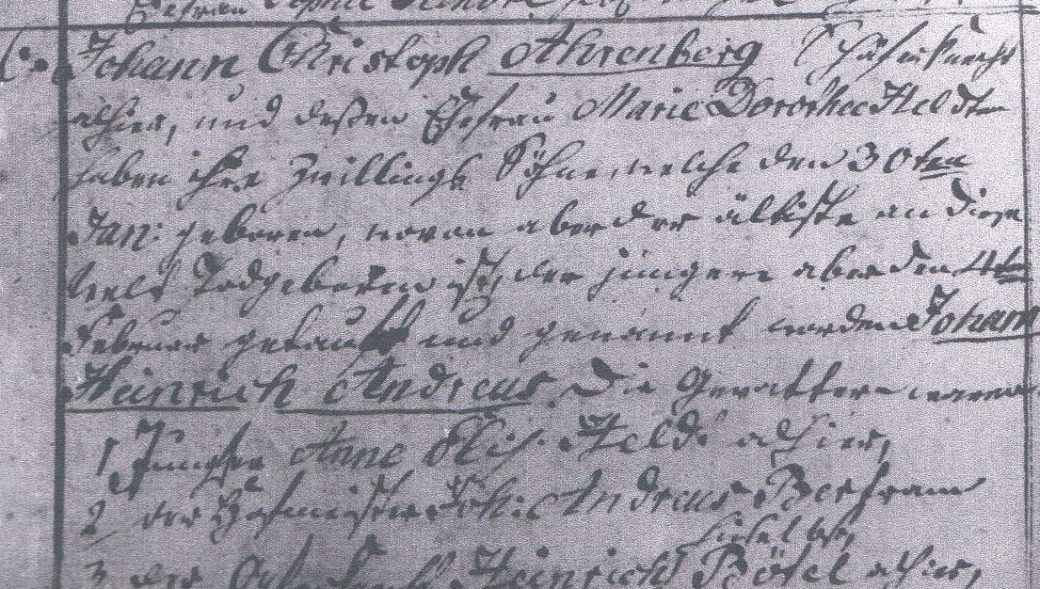 Johann Christoph Ahrenberg Schäferknecht
alhier, und deßen Ehefrau Marie Dorothee Heldten
haben ihre Zwillings Söhne, welche den 30ten
Jan: geboren, wovon aber der älteste
Todgeboren ist, der jüngere aber den 4ten
Februar getauft und genannt worden Johann
Heinrich Andreas. Die Gevattern waren
1, Jungfer Anne Elis. Heldt alhier,
2, der Hofmeister Joh: Andreas Bertram
hieselbst,
3, der Heinrich Bösel alhier,